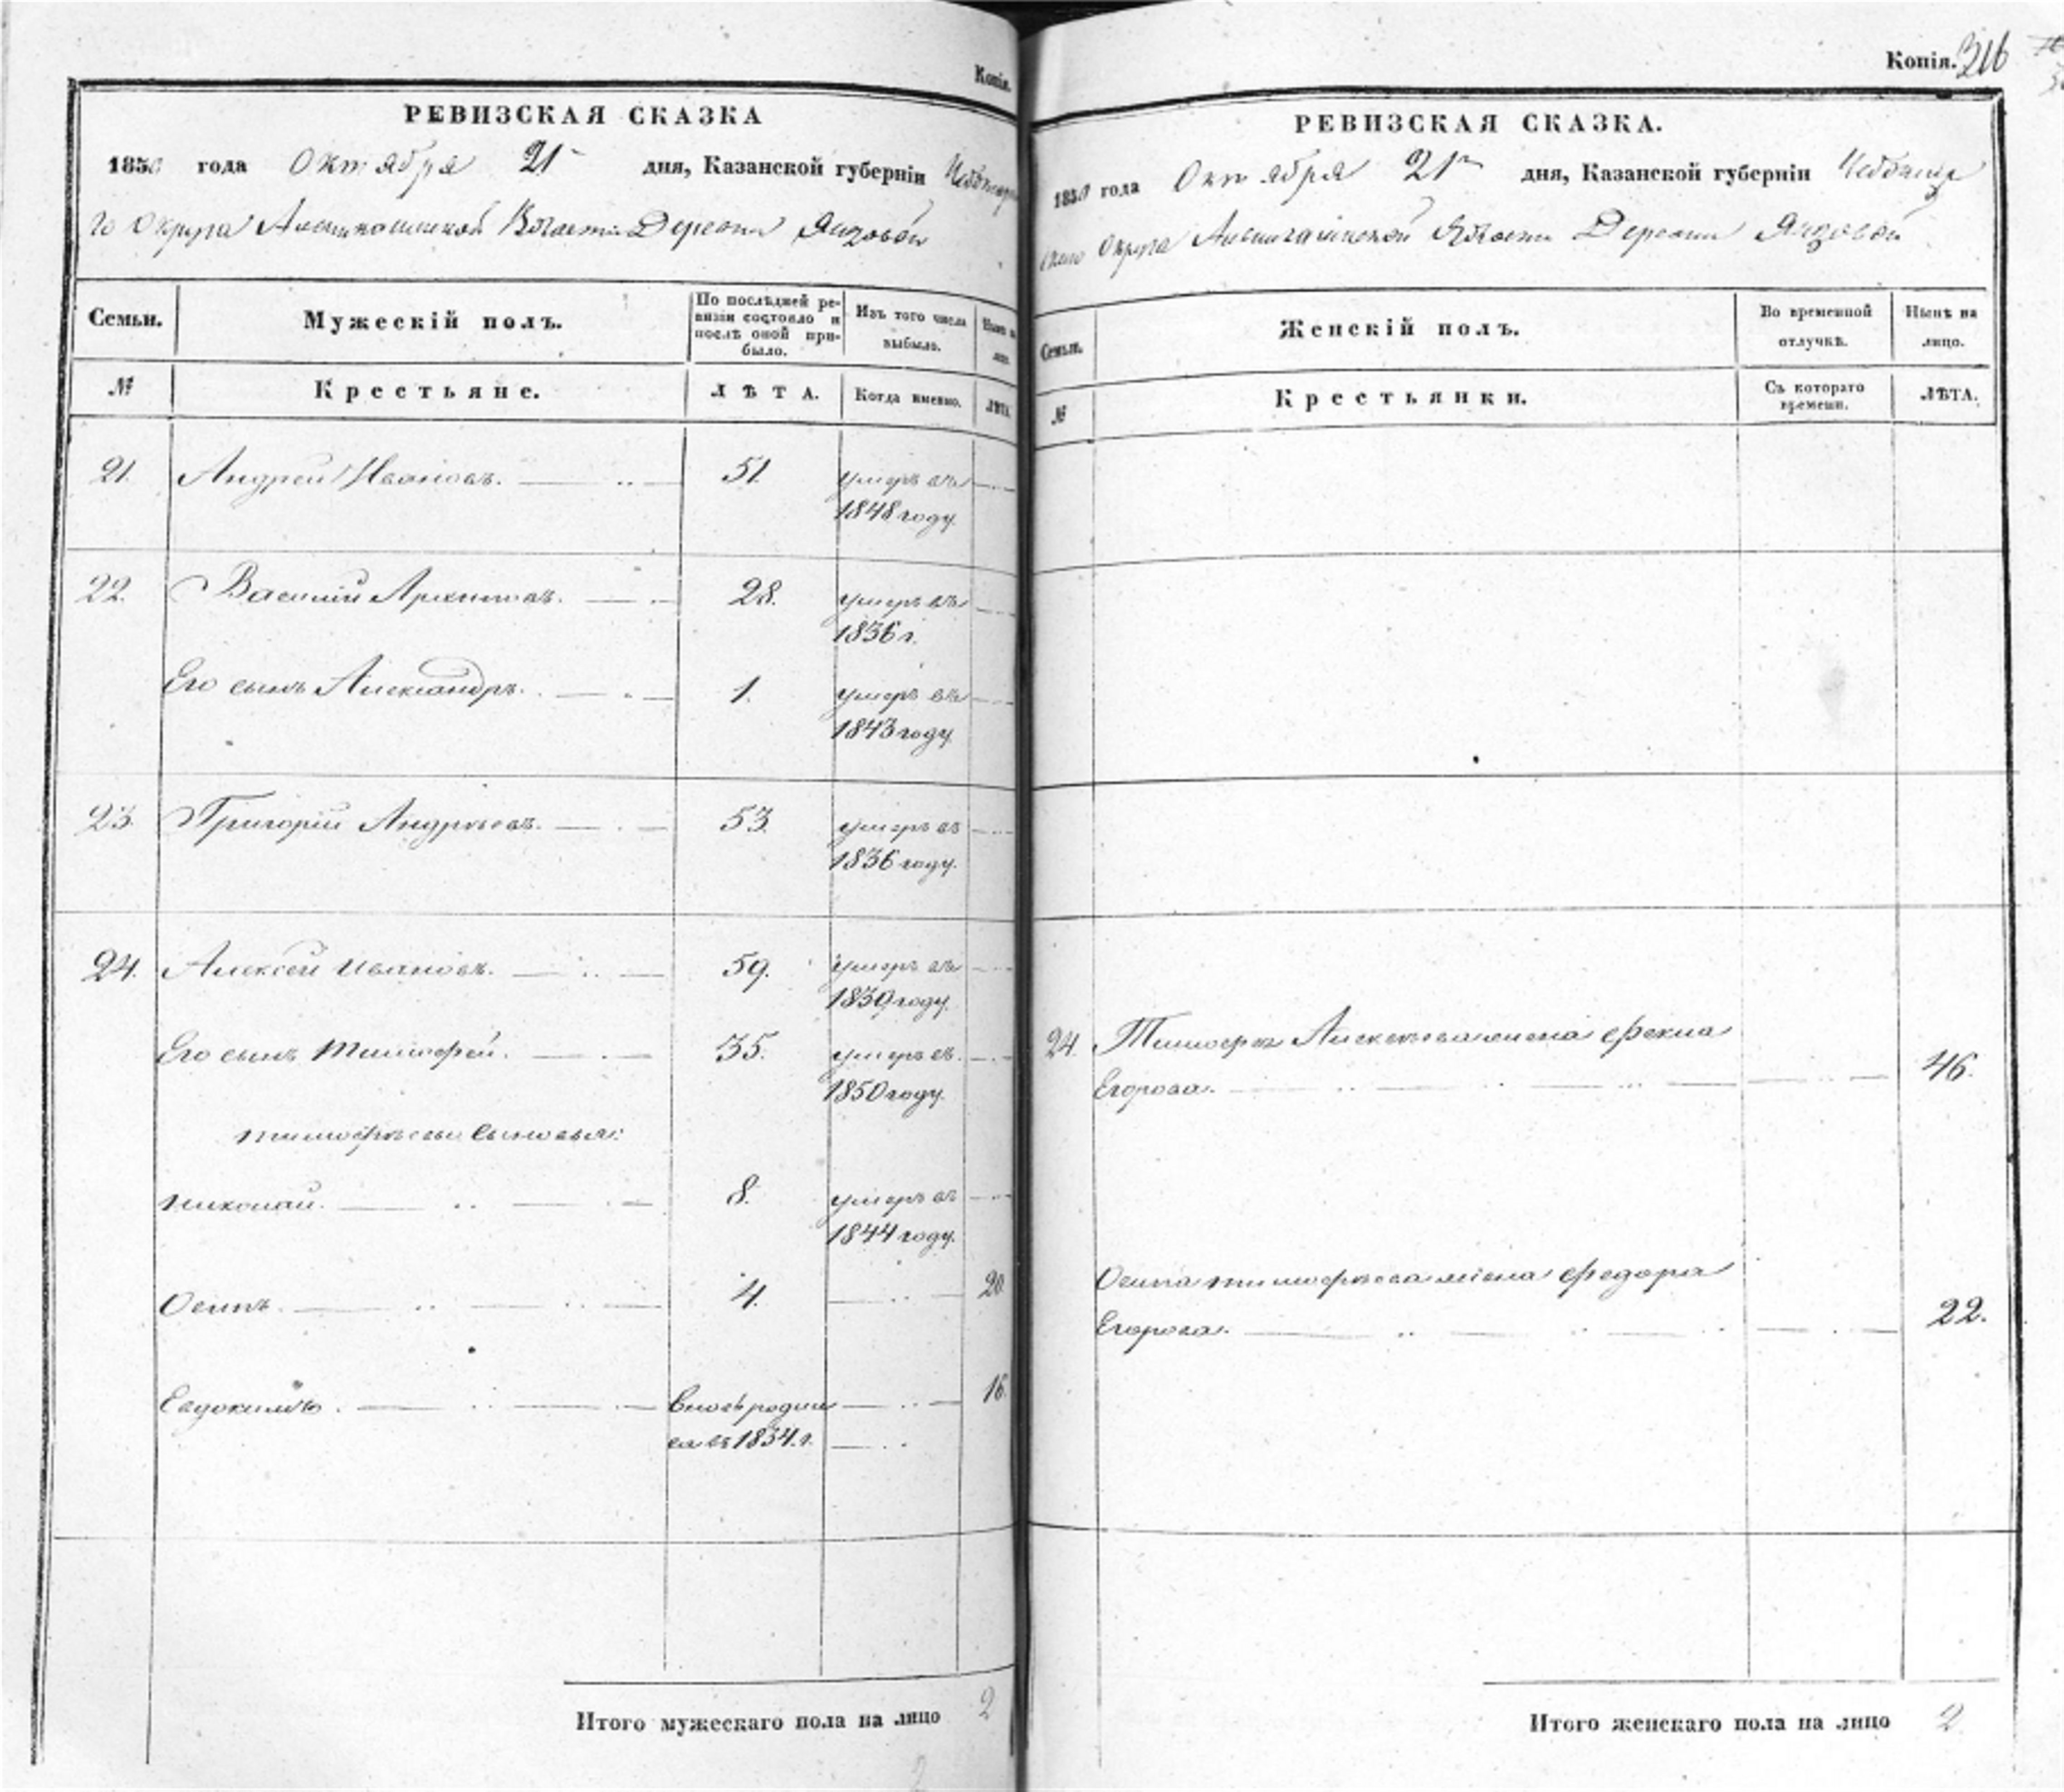 Копія.
РЕВИЗСКАЯ СКАЗКА
1850 года Октября 21 дня, Казанской губерніи
го Округа Волости Деревни Янзовой
Семьи.
Мужескій полъ.
По послѣдней ре-
визіи состояло и
послѣ оной при-
было.
Изъ того числа
выбыло.
Нынѣ
№
Крестьяне.
ЛѢТА.
Когда именно.
ЛѢТА.
21. Андрей Ивановъ. 51. умеръ въ
1848 году.
22. Василий Архиповъ. 28. умеръ въ
1836 г.
Его сынъ Александръ. 1. умеръ въ
1843 году.
23. Григорій Андрѣевъ. 53. умеръ въ
1836 году.
24. Алексей Ивановъ. 59. умеръ въ
1839 году.
Его сынъ Тимофей. 35. умеръ въ
1850 году.
Тимофѣевы сыновья:
Николай. 8. умеръ въ
1844 году.
Осипъ. 4. 20.
Евдокимъ. вновь родил
ся въ 1834 г. 16.
Итого мужескаго пола на лицо 2
2
Копія. 316
РЕВИЗСКАЯ СКАЗКА.
1850 года Октября 21 дня, Казанской губерніи Чебоксар
скаго Округа Волости Деревни Янзовой
Семьи.
Женскій полъ.
Во временной
отлучкѣ.
Нынѣ на
лицо.
№
Крестьянки.
Съ котораго
времени.
ЛѢТА.
24. Тимофея Алексѣева жена Фекла
Егорова. 46.
Осипа Тимофѣева жена Федора
Егорова. 22.
Итого женскаго пола на лицо 2